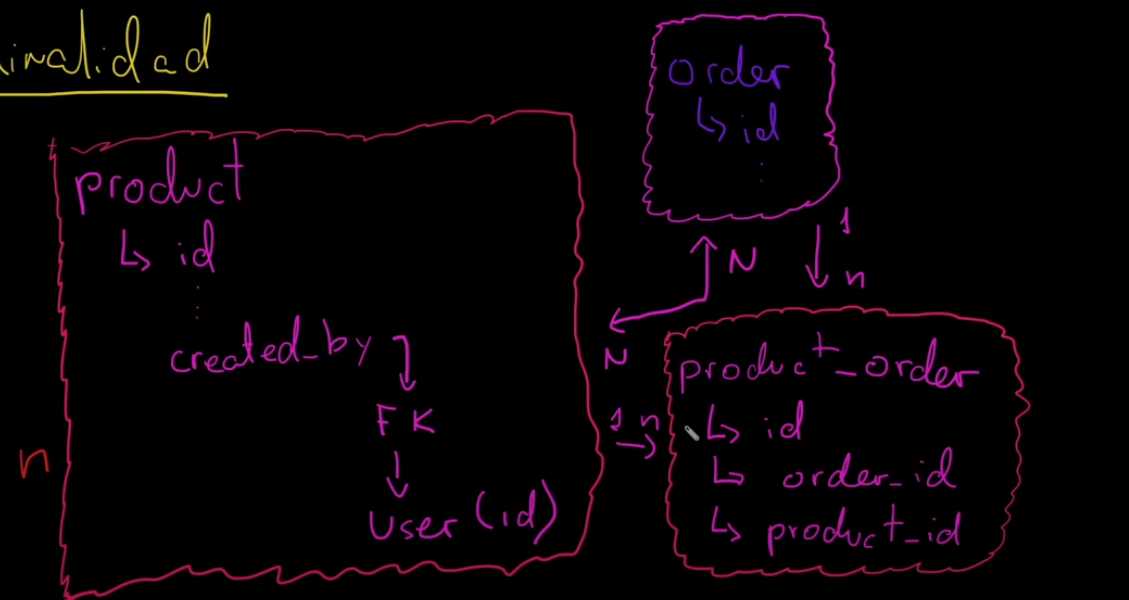 product
↳ id
⋮
created_by
FK
↓
User (id)
n
order
↳ id
⋮
1
N
n
N
1 n
→
product_order
↳ id
↳ order_id
↳ product_id